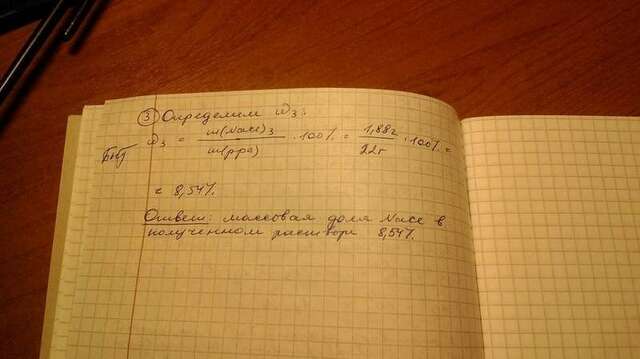 ③ Определим ω₃:
ω₃ = m(NaCl)₃ / m(р-ра) · 100% = 1,88г / 22г · 100% =
= 8,54%.
Ответ: массовая доля NaCl в
полученном растворе 8,54%.